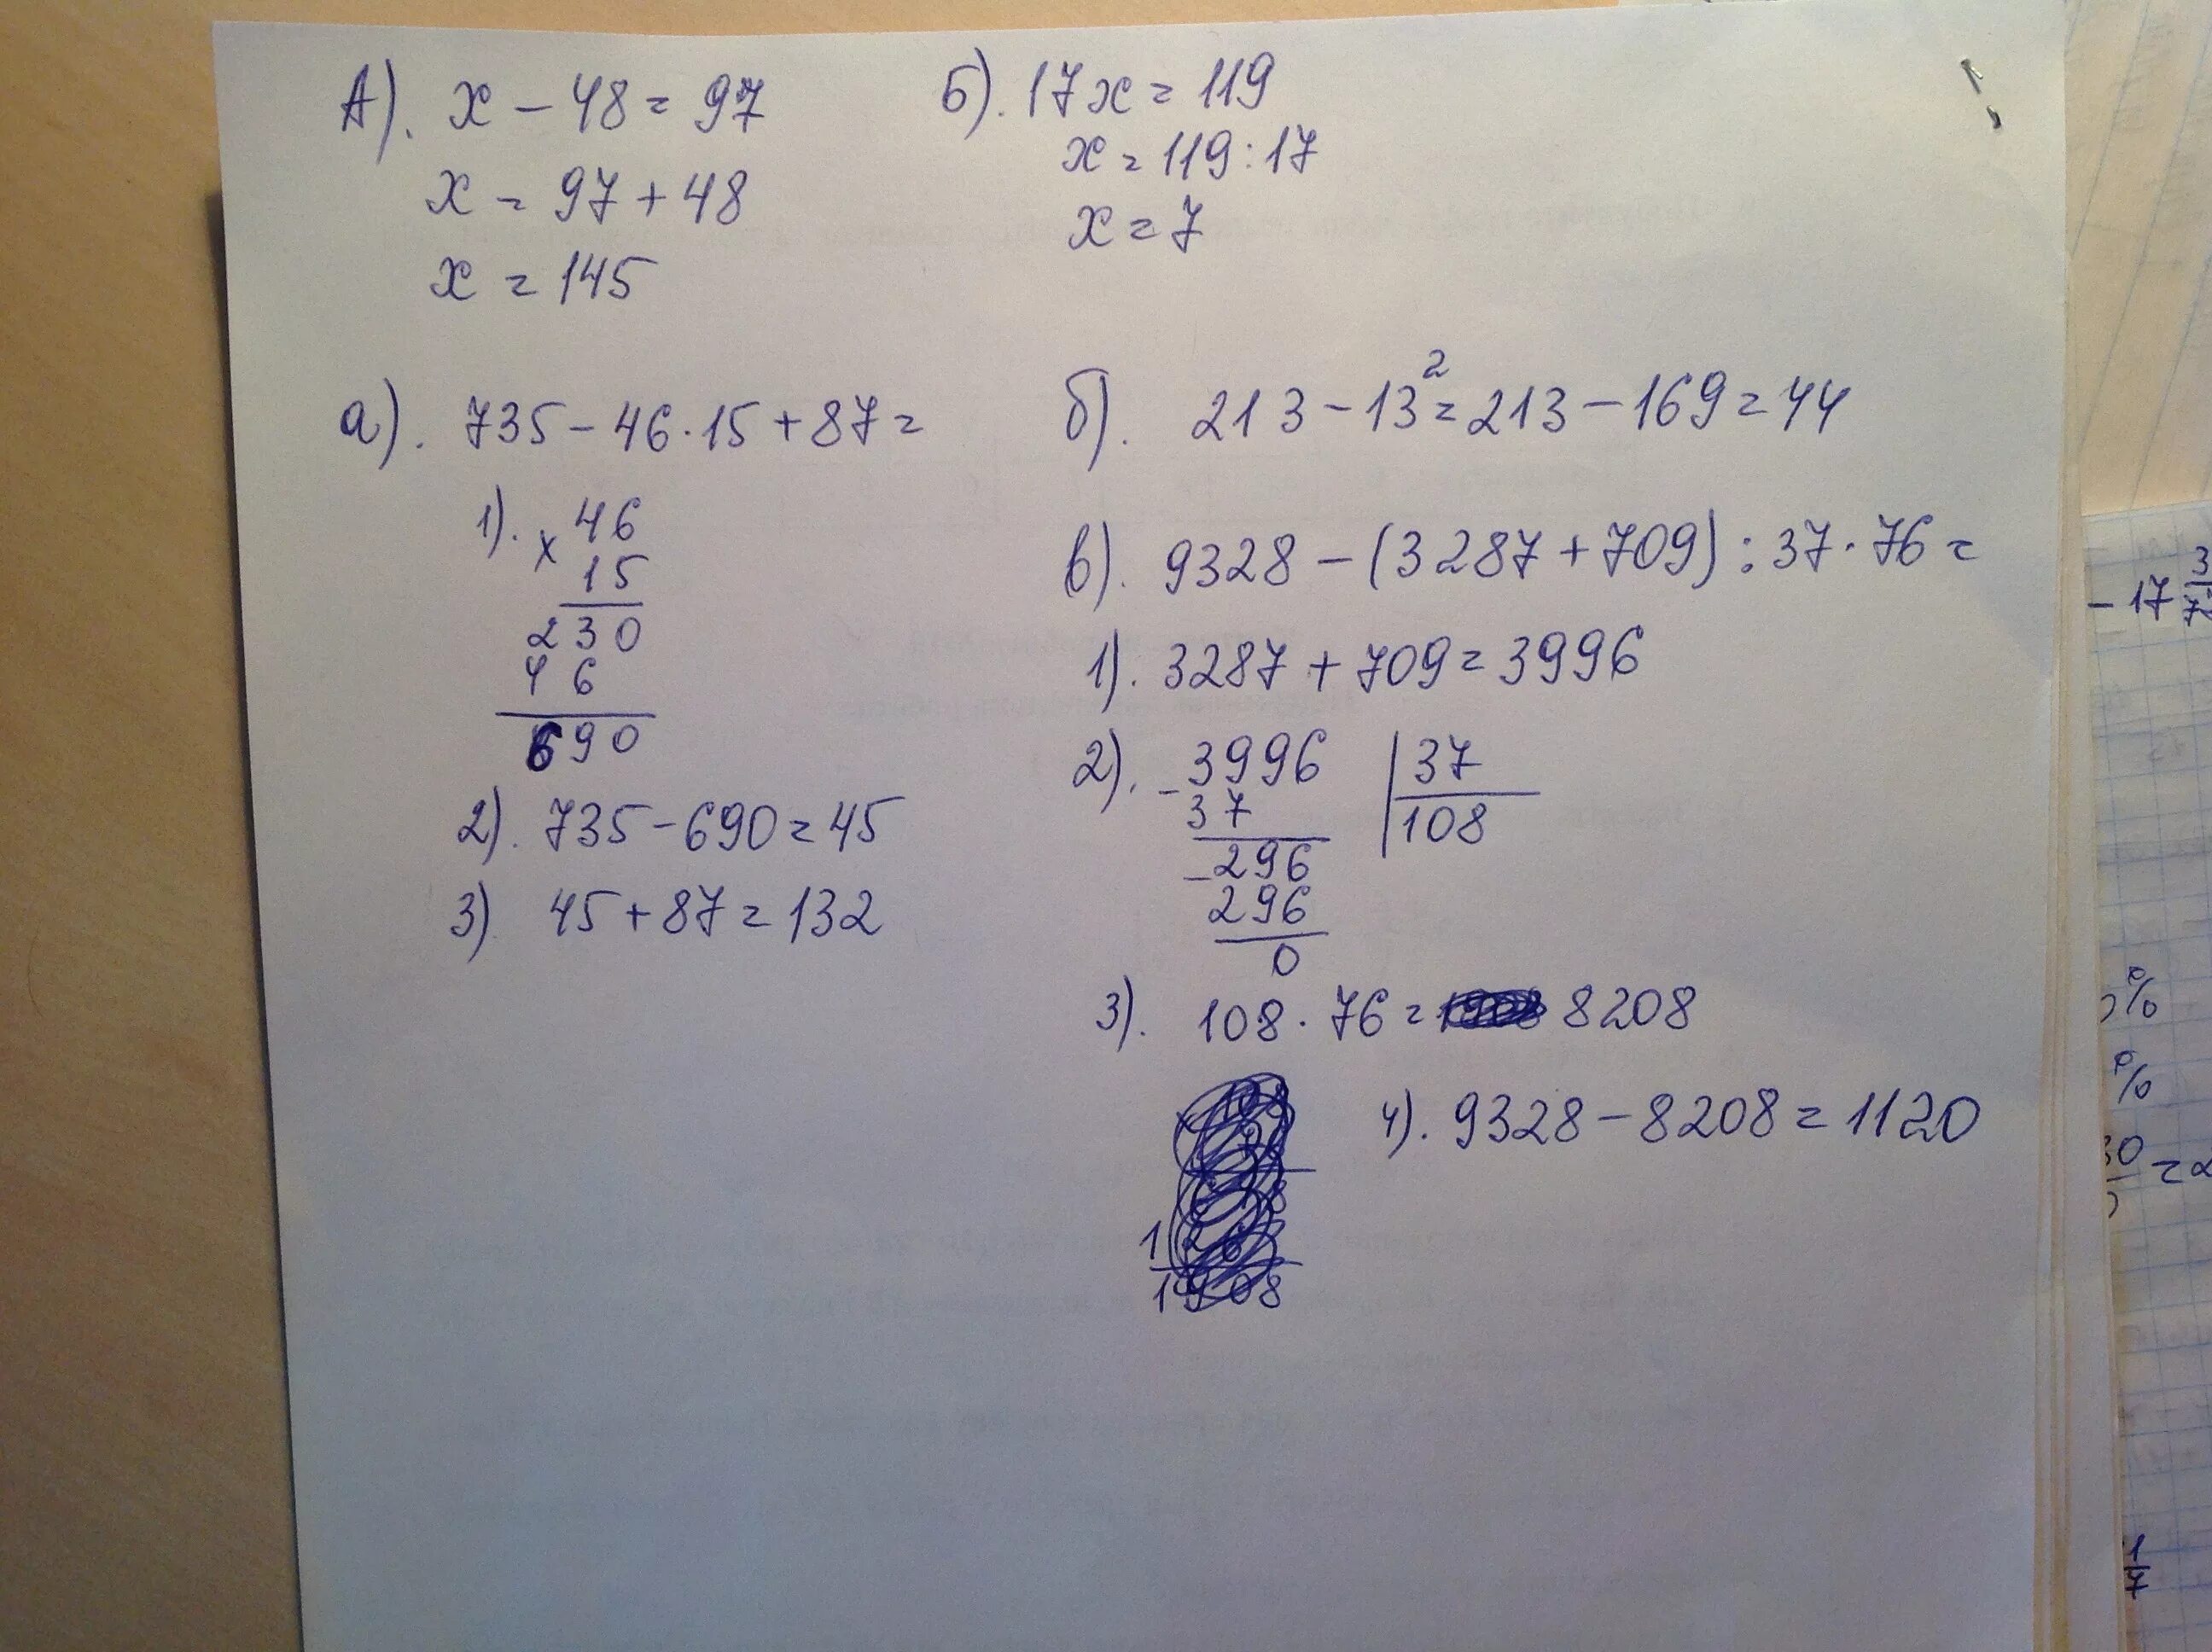 А). x - 48 = 97
x = 97 + 48
x = 145
Б). 17x = 119
x = 119 : 17
x = 7
а). 735 - 46 · 15 + 87 =
1). × 46
15
230
46
690
2). 735 - 690 = 45
3) 45 + 87 = 132
б). 213 - 13² = 213 - 169 = 44
в). 9328 - (3287 + 709) : 37 · 76 =
1). 3287 + 709 = 3996
2). - 3996 | 37
37 | 108
- 296
296
0
3). 108 · 76 = 8208
4). 9328 - 8208 = 1120
- 17 3/7
%
%
30
= 2
1/7